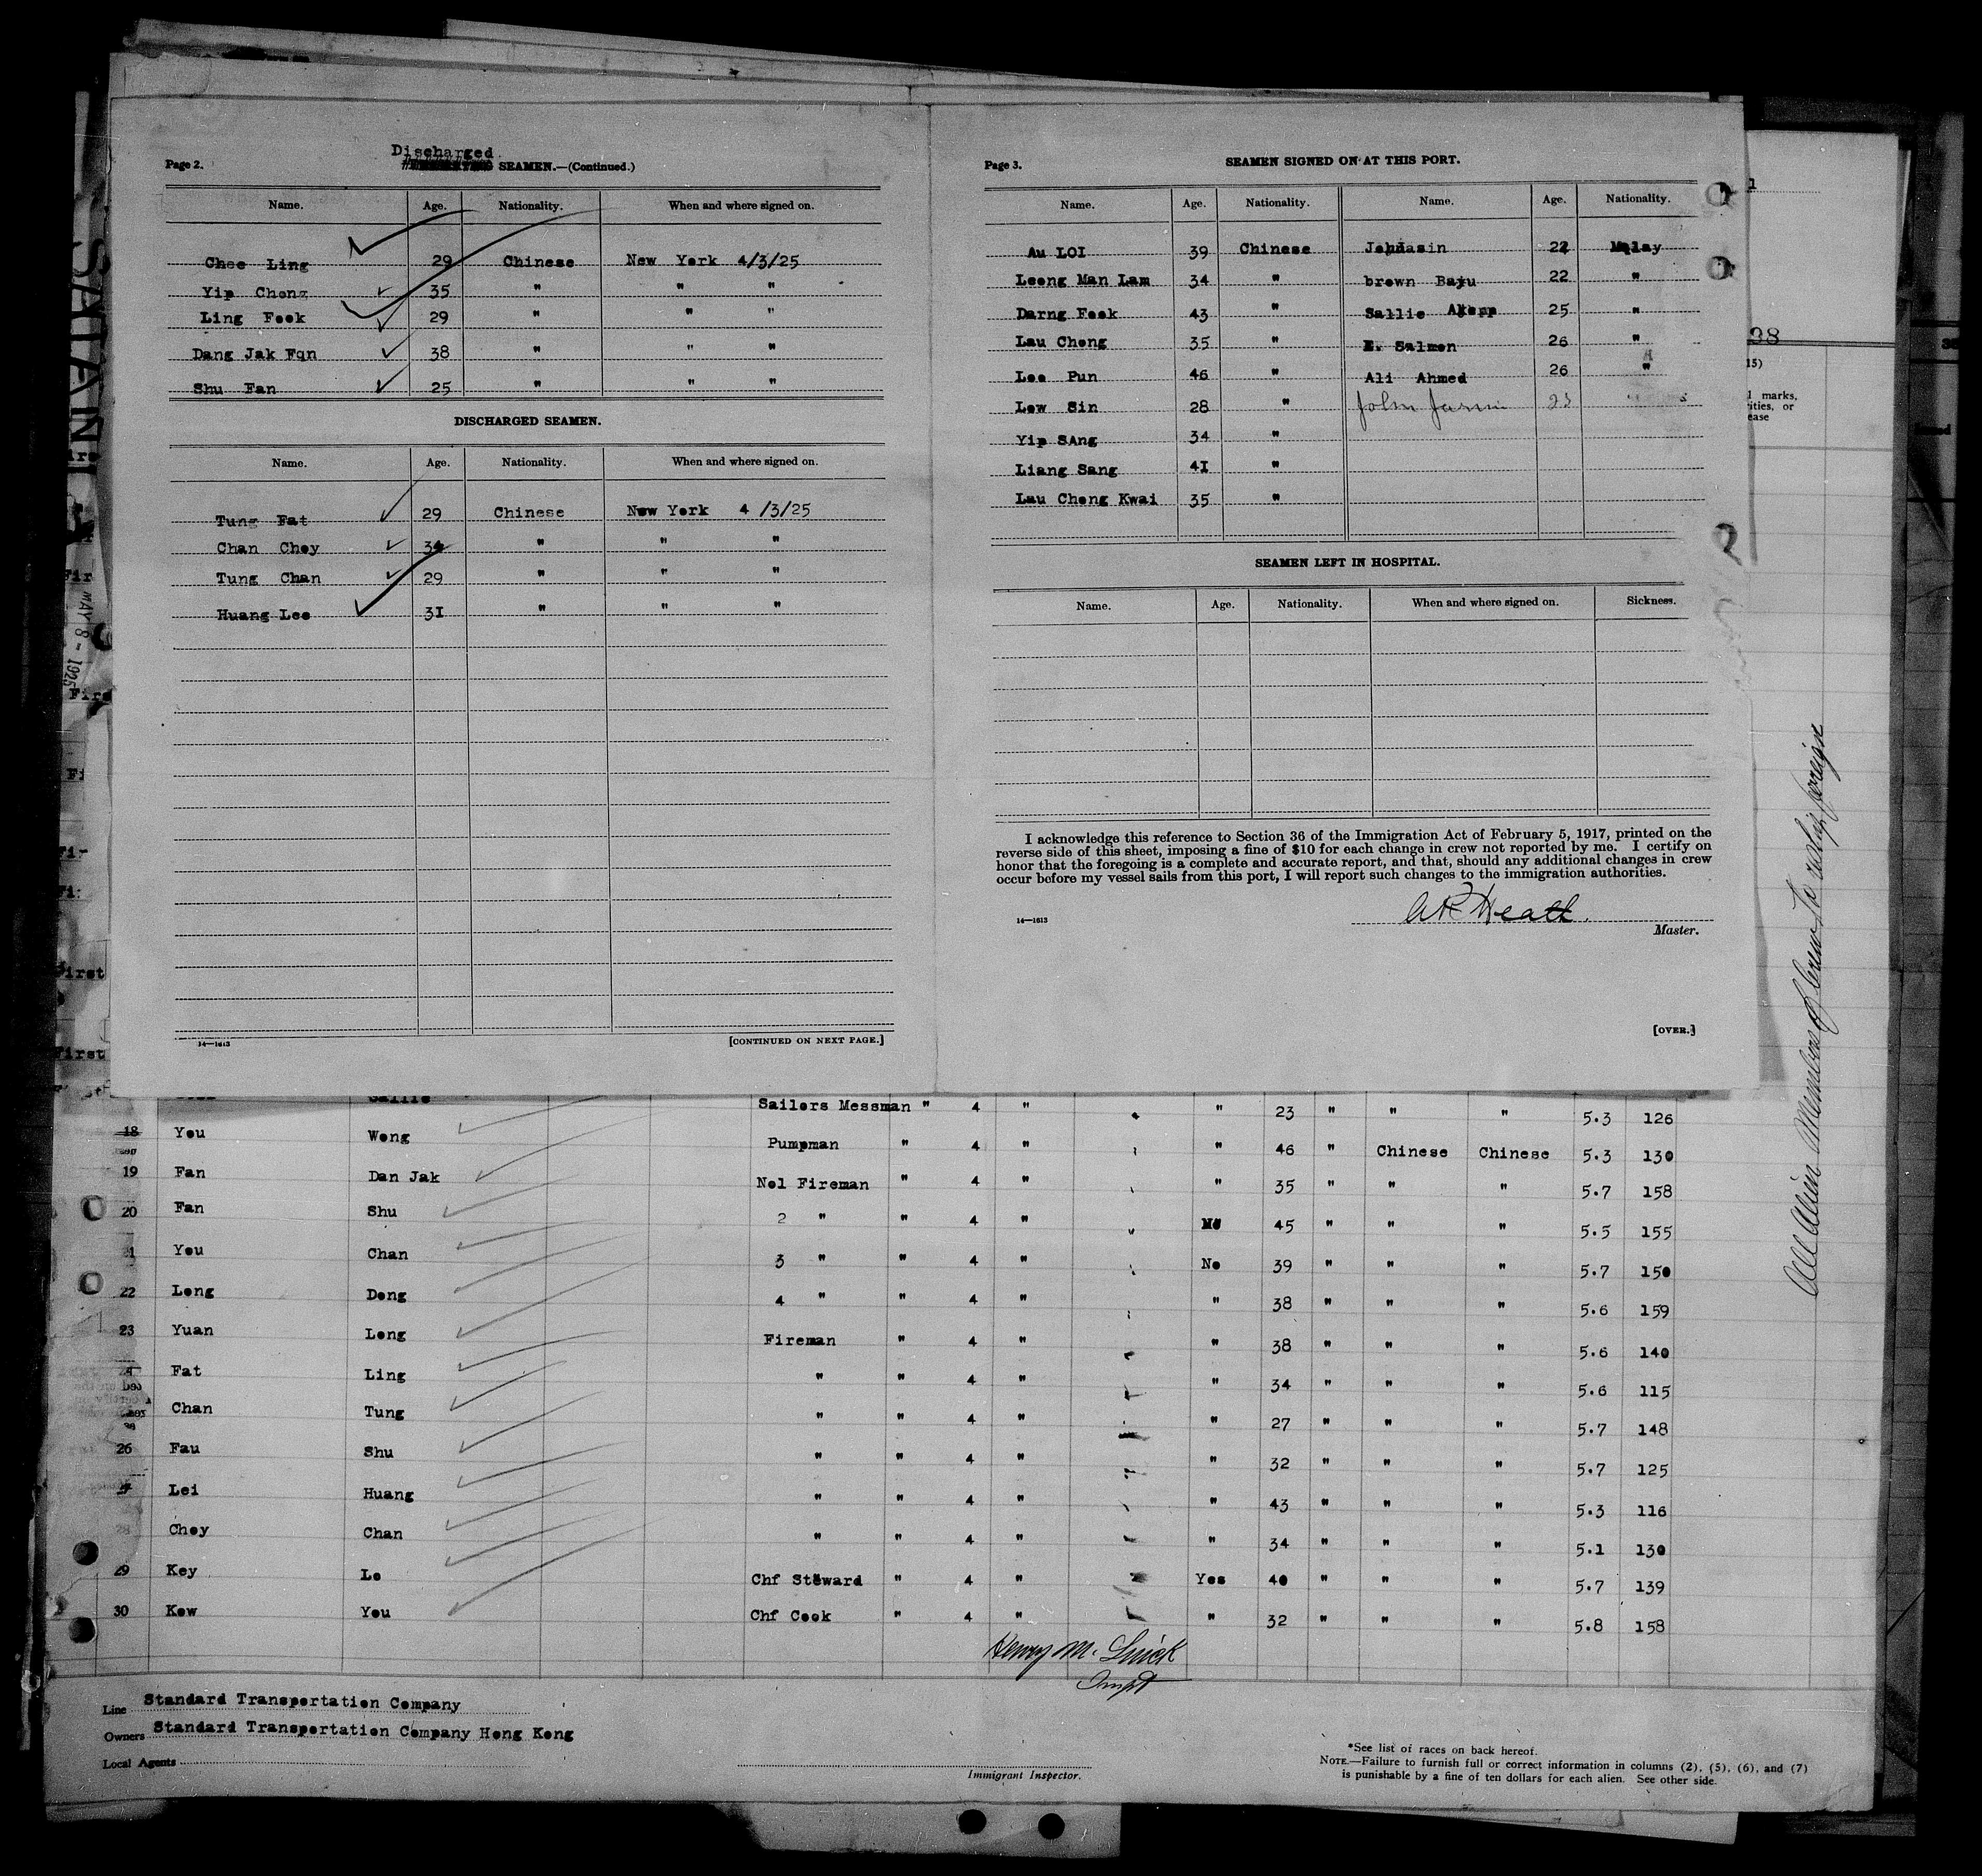 Page 2.
Discharged
SEAMEN.—(Continued.)
Name. Age. Nationality. When and where signed on.
Chee Ling 29 Chinese New York 4/3/25
Yip Cheng 35 " " "
Ling Feek 29 " " "
Dang Jak Fqn 38 " " "
Shu Fan 25 " " "
DISCHARGED SEAMEN.
Name. Age. Nationality. When and where signed on.
Tung Fat 29 Chinese New York 4 /3/25
Chan Choy 34 " " "
Tung Chan 29 " " "
Huang Lee 31 " " "
14—1613
[CONTINUED ON NEXT PAGE.]
Page 3.
SEAMEN SIGNED ON AT THIS PORT.
Name. Age. Nationality. Name. Age. Nationality.
Au LOI 39 Chinese 22 Malay
Leong Man Lam 34 " brown Baju 22 "
Darng Feek 43 " Sallie 25 "
Lau Cheng 35 " E. Salmen 26 "
Lee Pun 46 " Ali Ahmed 26 "
Lew Sin 28 " John 23
Yip SAng 34 "
Liang Sang 41 "
Lau Cheng Kwai 35 "
SEAMEN LEFT IN HOSPITAL.
Name. Age. Nationality. When and where signed on. Sickness.
I acknowledge this reference to Section 36 of the Immigration Act of February 5, 1917, printed on the
reverse side of this sheet, imposing a fine of $10 for each change in crew not reported by me. I certify on
honor that the foregoing is a complete and accurate report, and that, should any additional changes in crew
occur before my vessel sails from this port, I will report such changes to the immigration authorities.
14—1613
AR Heath
Master.
[OVER.]
MAY 8 - 1925
All Alien Members of Crew To reship foreign
Sallie Sailers Messman " 4 " " 23 " " " 5.3 126
18 You Wong Pumpman " 4 " " 46 " Chinese Chinese 5.3 130
19 Fan Dan Jak No1 Fireman " 4 " " 35 " " " 5.7 158
20 Fan Shu 2 " " 4 " 45 " " " 5.5 155
21 You Chan 3 " " 4 " No 39 " " " 5.7 150
22 Leng Deng 4 " " 4 " " 38 " " " 5.6 159
23 Yuan Leng Fireman " 4 " " 38 " " " 5.6 140
Fat Ling " " 4 " " 34 " " " 5.6 115
Chan Tung " " 4 " " 27 " " " 5.7 148
26 Fau Shu " " 4 " " 32 " " " 5.7 125
27 Lei Huang " " 4 " " 43 " " " 5.3 116
28 Choy Chan " " 4 " " 34 " " " 5.1 130
29 Key Le Chf Steward " 4 " Yes 40 " " " 5.7 139
30 Kew You Chf Cook " 4 " " 32 " " " 5.8 158
Henry M.
Line Standard Transportation Company
Owners Standard Transportation Company Hong Kong
Local Agents
Immigrant Inspector.
*See list of races on back hereof.
NOTE.—Failure to furnish full or correct information in columns (2), (5), (6), and (7)
is punishable by a fine of ten dollars for each alien. See other side.